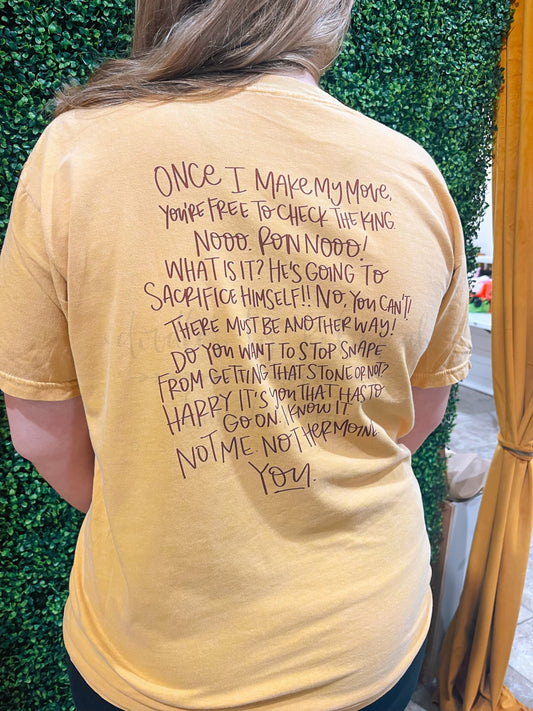 ONCE I MAKE MY MOVE,
YOU'RE FREE TO CHECK THE KING.
NOOO. RON NOOO!
WHAT IS IT? HE'S GOING TO
SACRIFICE HIMSELF!! NO, YOU CAN'T!
THERE MUST BE ANOTHER WAY!
DO YOU WANT TO STOP SNAPE
FROM GETTING THAT STONE OR NOT?
HARRY IT'S YOU THAT HAS TO
GO ON. I KNOW IT.
NOT ME. NOT HERMOINE.
YOU.